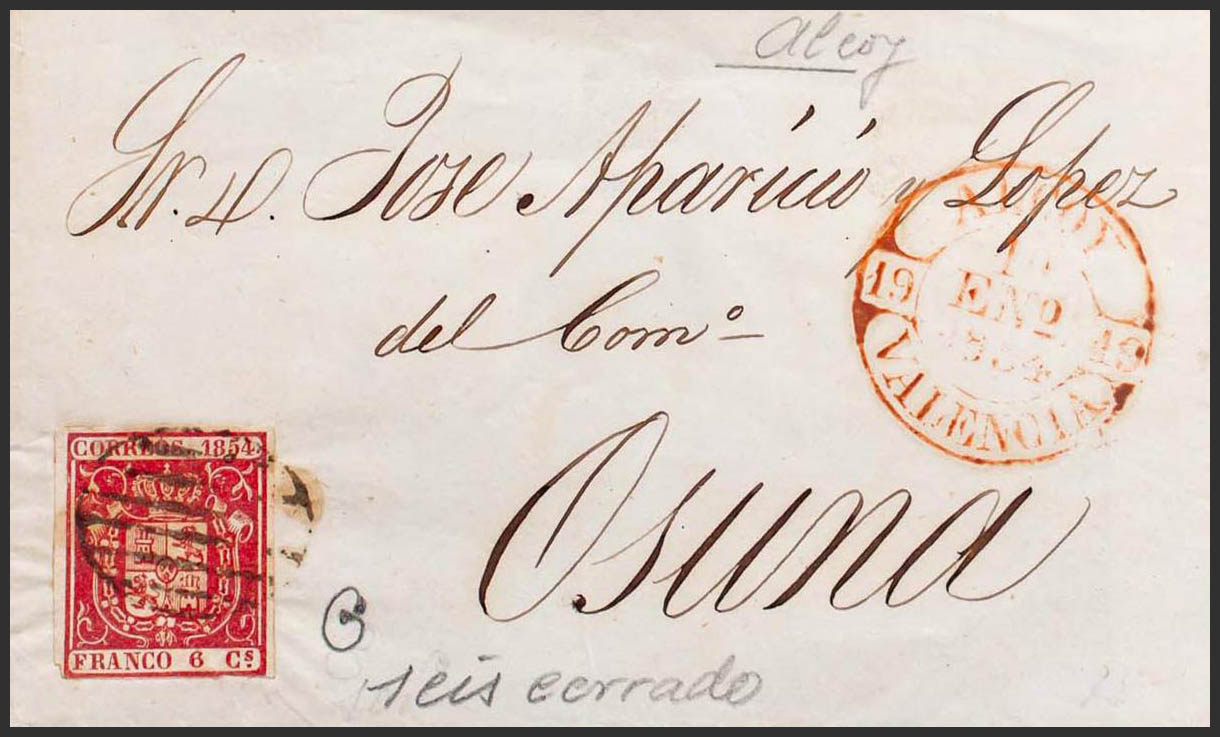 Alcoy
Sr. D. Jose Aparicio y Lopez
del Comº
Osuna
ALCOY
19
ENº
1854
VALENCIA
CORREOS 1854
FRANCO 6 Cs
6
seis cerrado